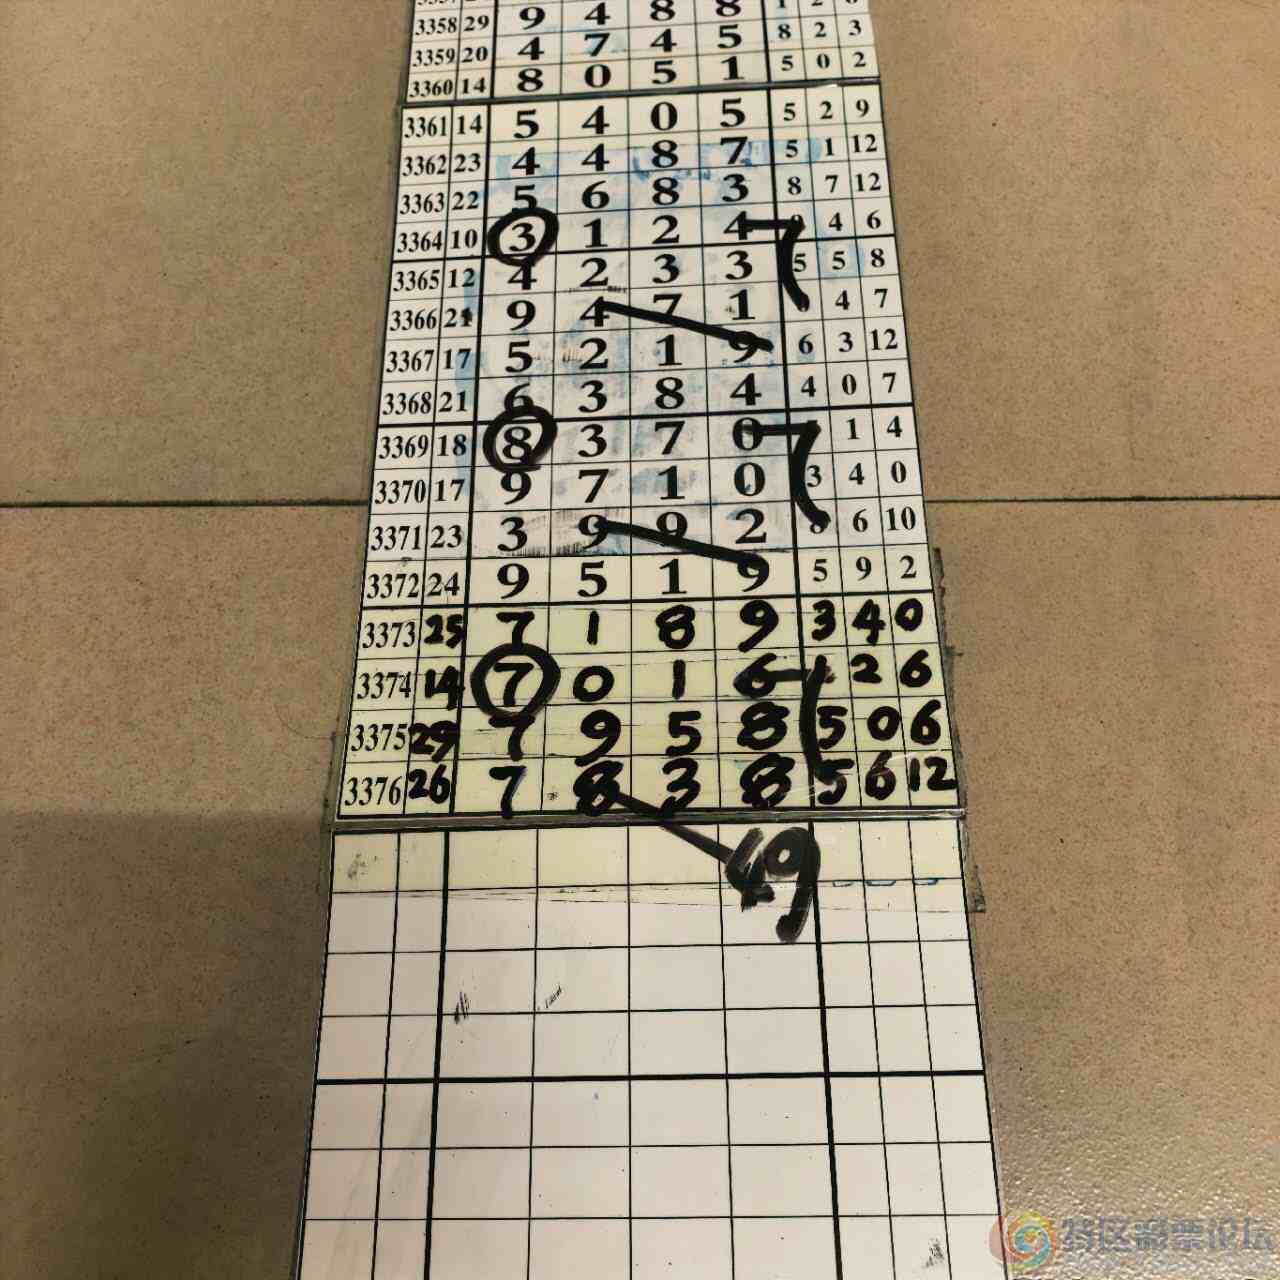 3358 29 9 4 8 8
3359 20 4 7 4 5 8 2 3
3360 14 8 0 5 1 5 0 2
3361 14 5 4 0 5 5 2 9
3362 23 4 4 8 7 5 1 12
3363 22 5 6 8 3 8 7 12
3364 10 3 1 2 4 4 6
3365 12 4 2 3 3 5 5 8
3366 21 9 4 7 1 4 7
3367 17 5 2 1 9 6 3 12
3368 21 6 3 8 4 4 0 7
3369 18 8 3 7 0 1 4
3370 17 9 7 1 0 3 4 0
3371 23 3 9 9 2 8 6 10
3372 24 9 5 1 9 5 9 2
3373 25 7 1 8 9 3 4 0
3374 14 7 0 1 6 1 2 6
3375 29 7 9 5 8 5 0 6
3376 26 7 8 3 8 5 6 12
49
特区彩票论坛